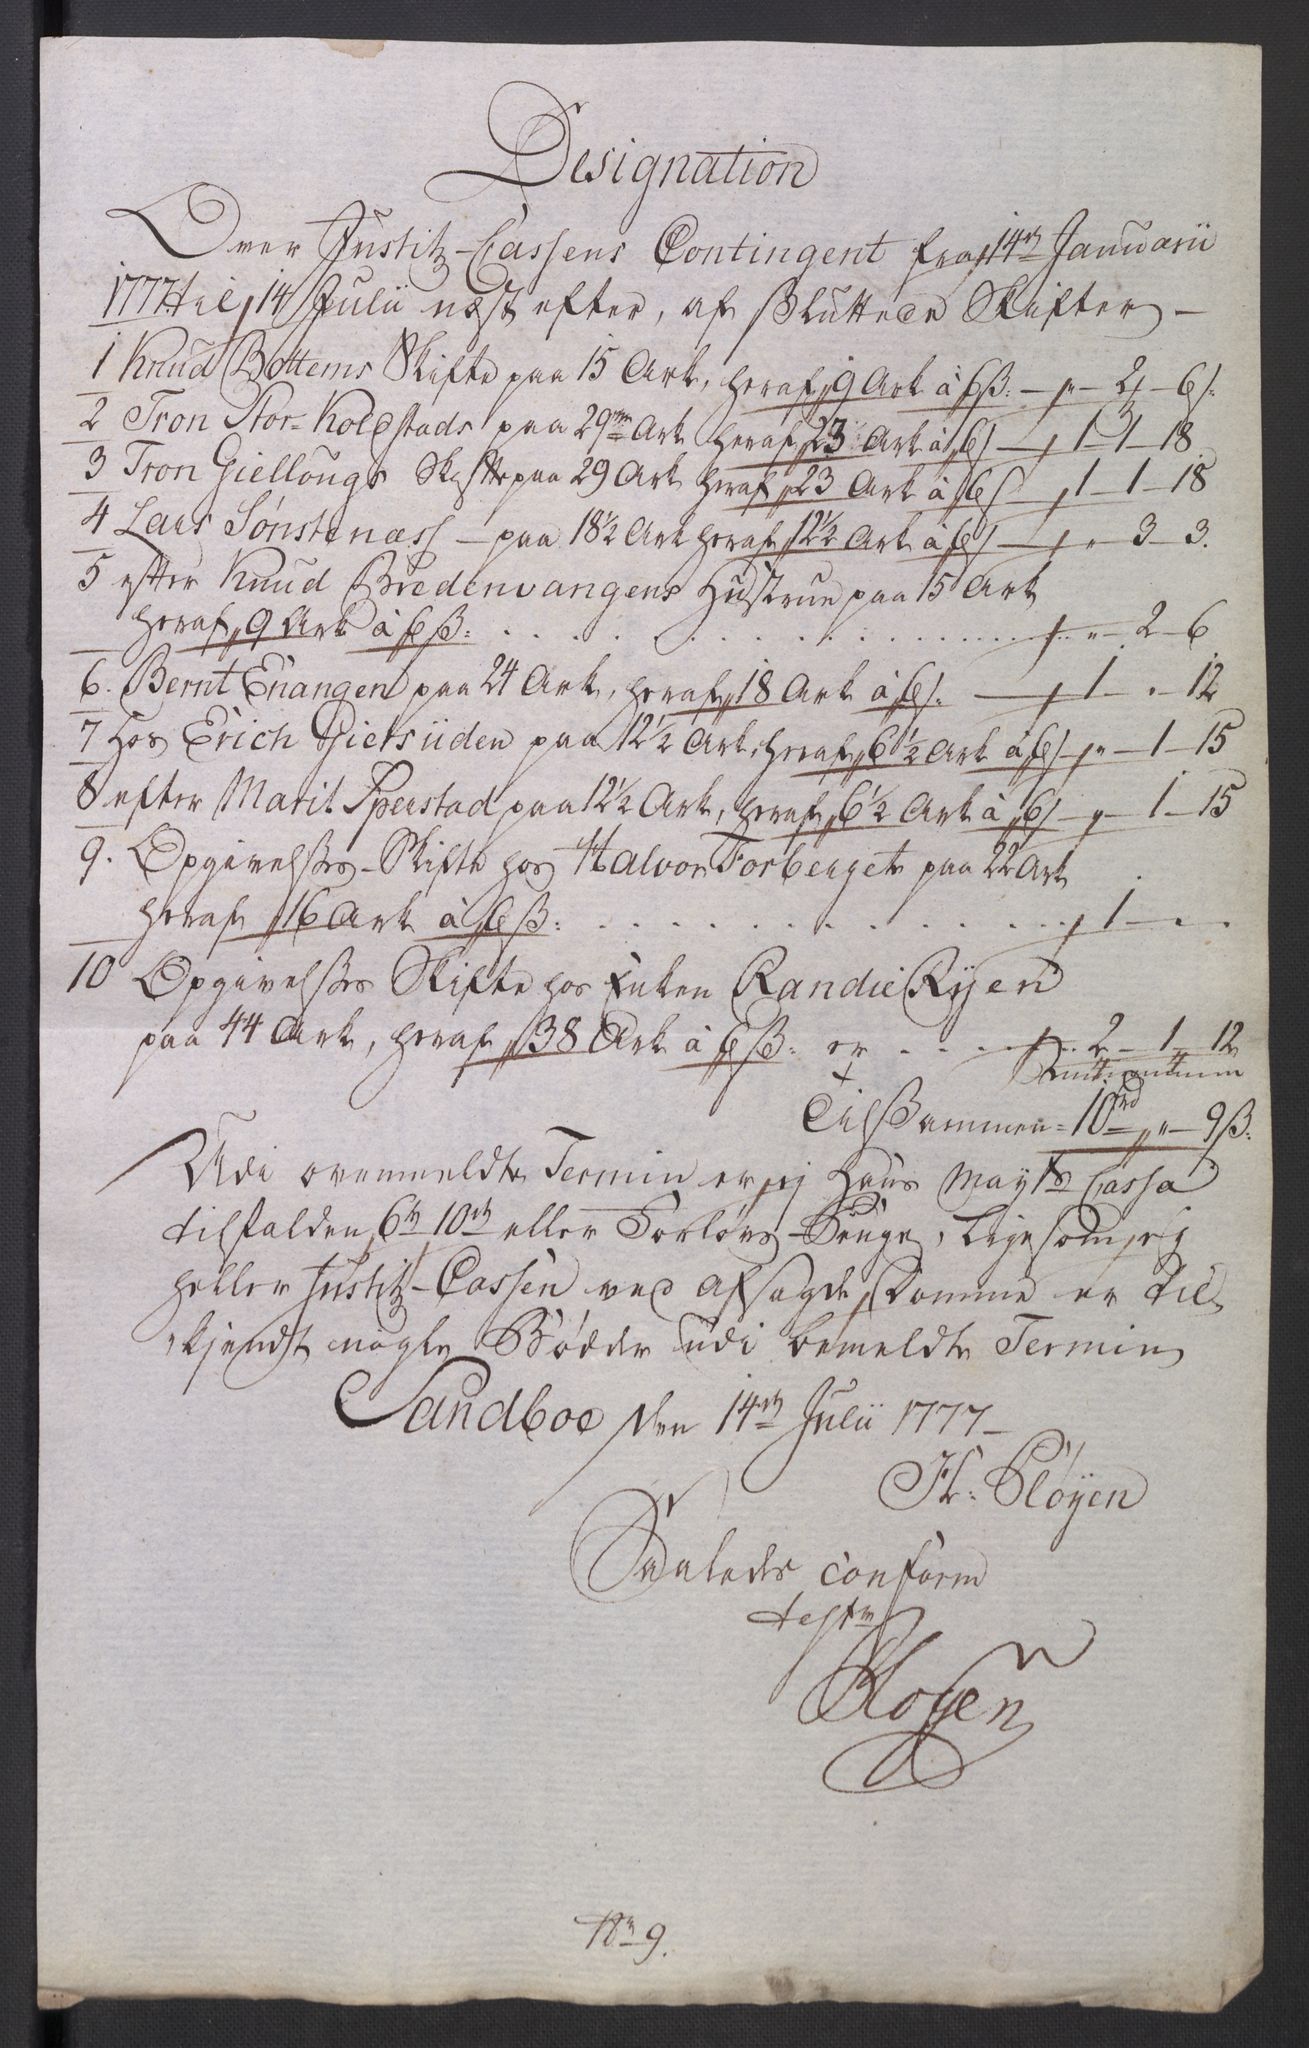 Designation
Over Justitz-Cassens Contingent fra 14de Januarii
1777 til 14 Julii næst efter, af sluttede Skifter –
1 Knud Bottems Skifte paa 15 Ark, heraf 9 Ark à 6 ß: – " – 2 – 6 ß:
2 Tron Stor-Kolestads paa 29 Ark heraf 23 Ark à 6 ß – 1 – 1 – 18
3 Tron Giellougs Skiftte paa 29 Ark heraf 23 Ark à 6 ß – 1 – 1 – 18
4 Lars Sønstenæss – paa 18½ Ark heraf 12½ Ark à 6 ß – " – 3 – 3.
5 efter Knud Bredenvangens Hustrue paa 15 Ark
heraf 9 Ark à 6 ß: . . . . . " – 2 – 6
6. Bernt Enangen paa 24 Ark, heraf 18 Ark à 6 ß. – 1 – . – 12
7 hos Erich paa 12½ Ark, heraf 6½ Ark à 6 ß – " – 1 – 15
8 efter Marit Sperstad paa 12½ Ark, heraf 6½ Ark à 6 ß – " – 1 – 15
9. Opgivelses-Skifte hos Halvor Forberget paa 22 Ark
heraf 16 Ark à 6 ß: . . . . . 1 – . .
10 Opgivelses Skifte hos Enken Randie Ryen
paa 44 Ark, heraf 38 Ark à 6 ß: er . . . . 2 – 1 – 12
Tilsammen = 10 rd " – 9 ß:
Udi ovenmeldte Termin er ej Hans Mayts Cassa
tilfalden 6te 10de eller Forlovs-Penge, ligesom ej
heller Justitz-Cassen ved afsagde Domme er til,
kjendt nogle Bøder udi bemeldte Termin
Sandboe den 14de Julii 1777 –
Fr: Pløyen
Saaledes conform
test
Pløyen
9.